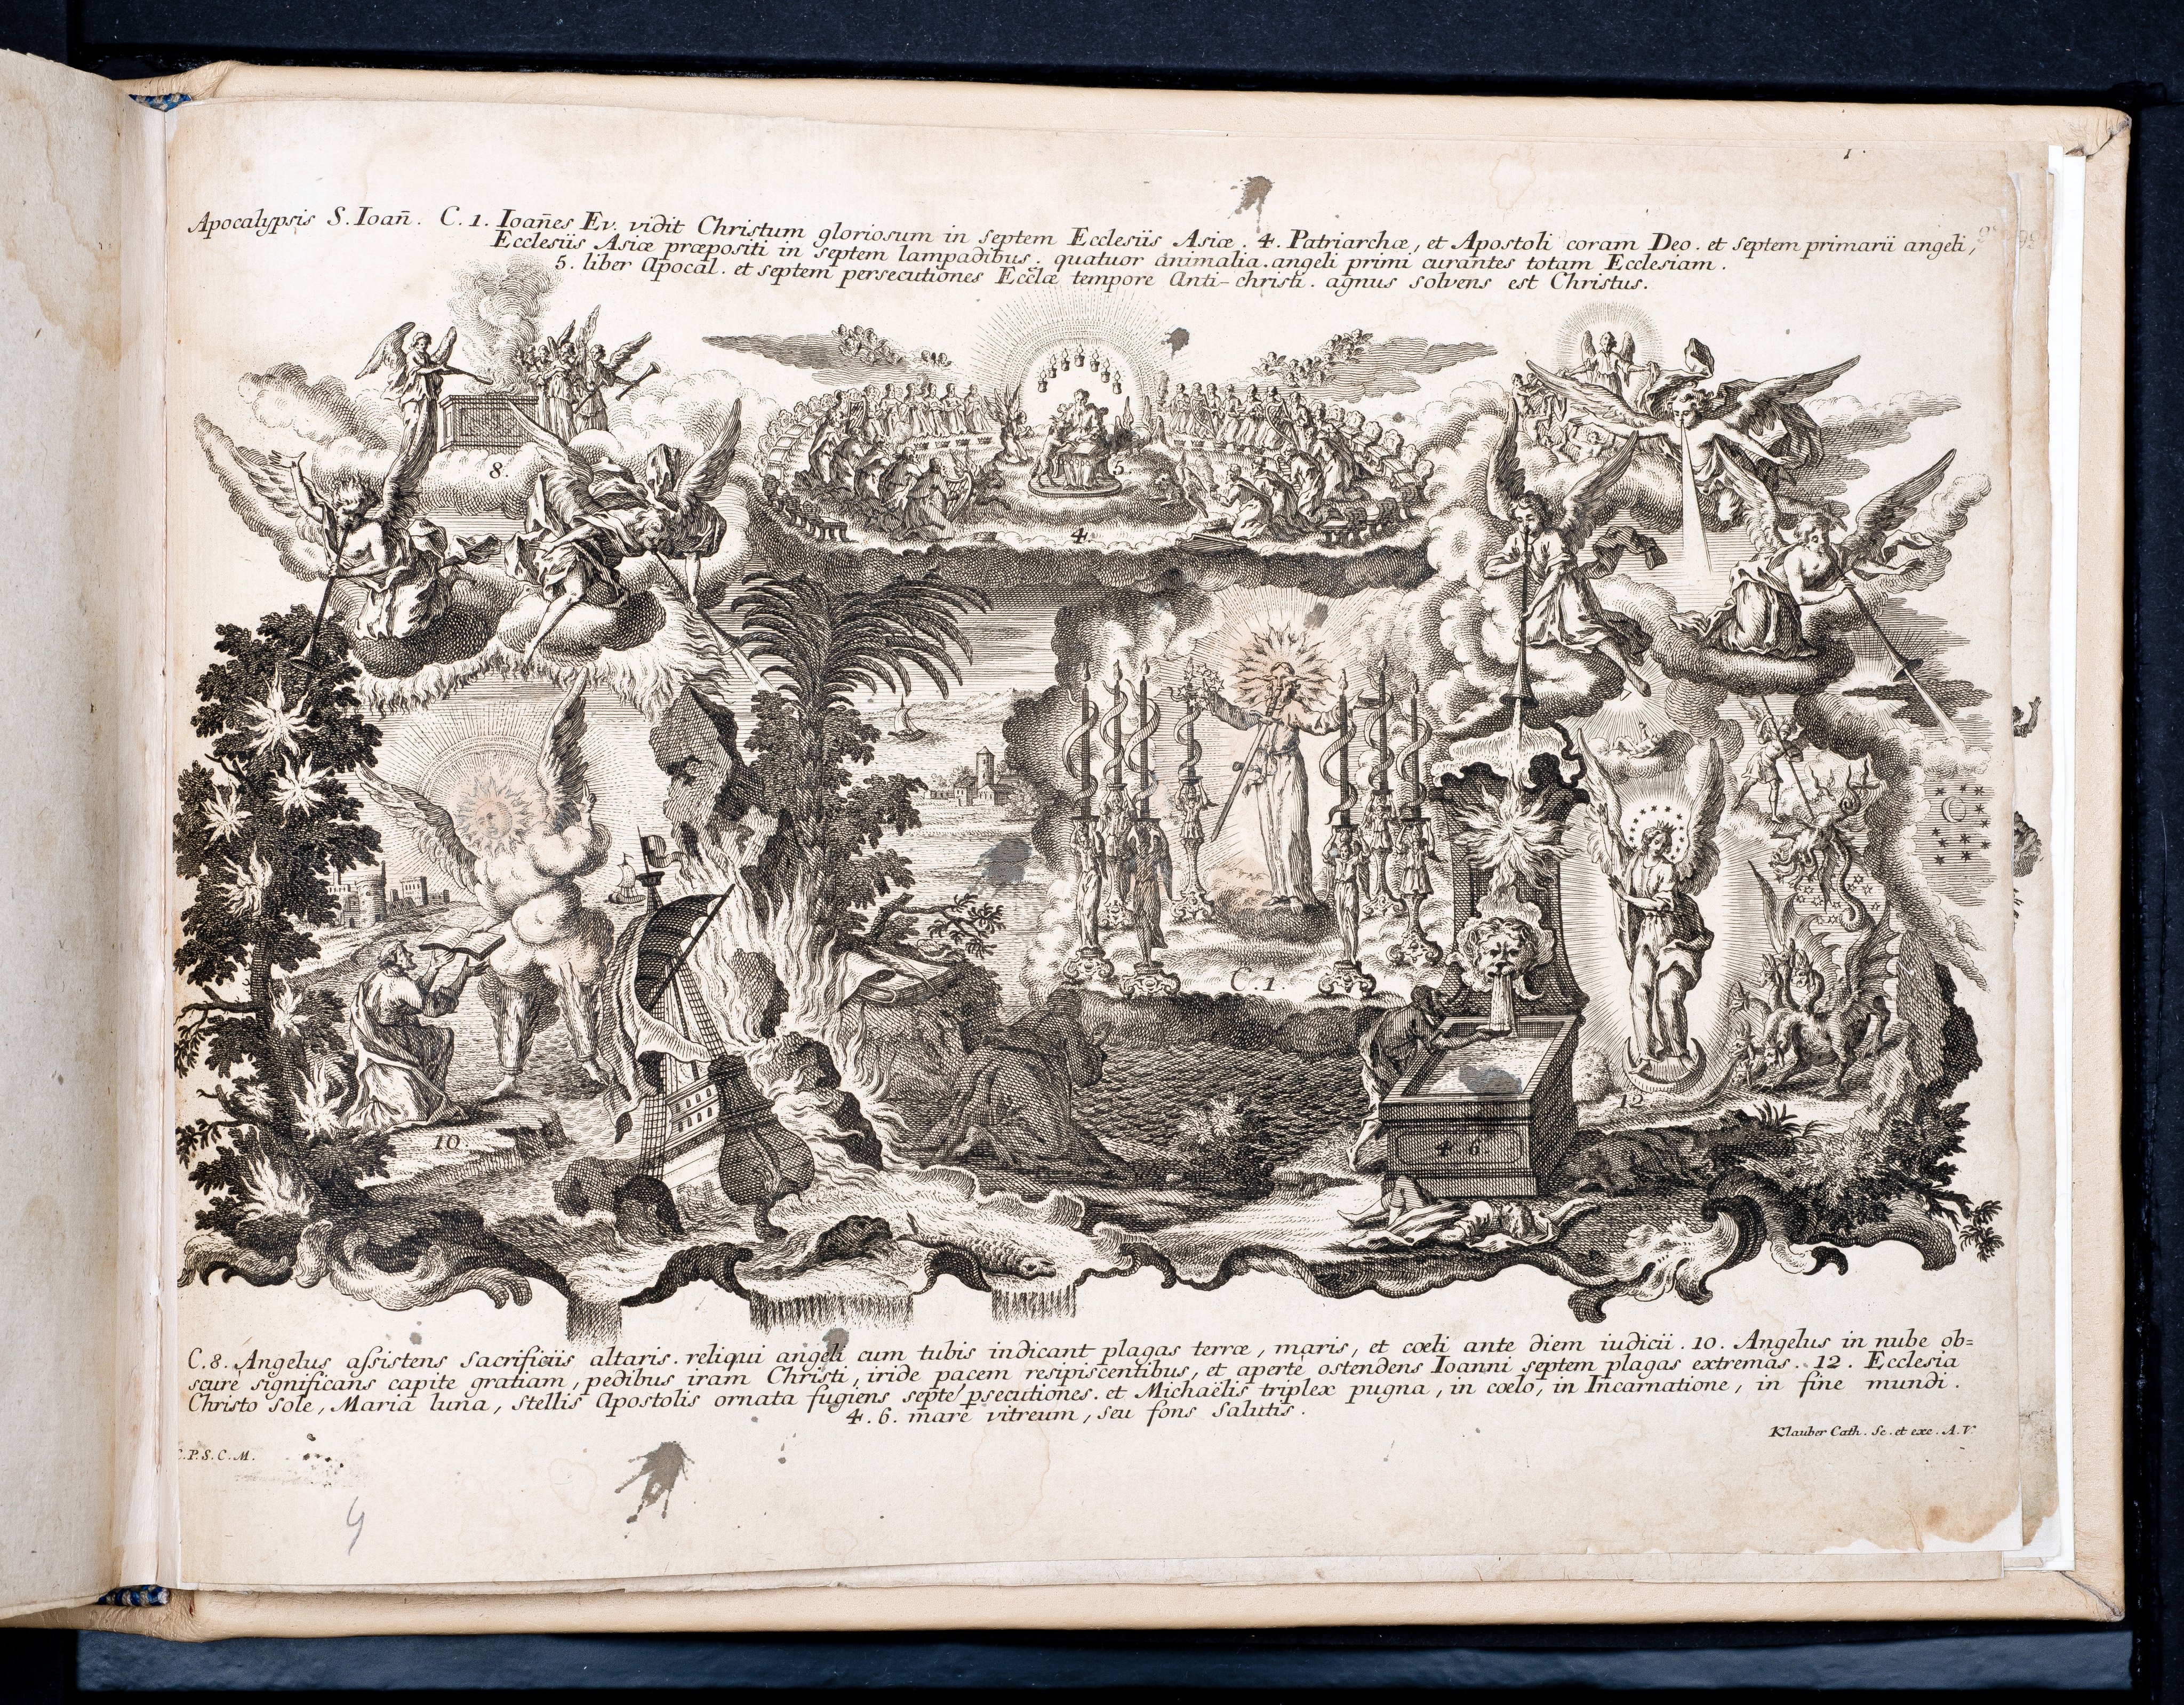 1.
Apocalypsis S. Ioan̄. C. 1. Ioan̄es Ev. vidit Christum gloriosum in septem Ecclesiis Asiæ. 4. Patriarchæ, et Apostoli coram Deo. et septem primarii angeli,
Ecclesiis Asiæ præpositi in septem lampadibus. quatuor animalia. angeli primi curantes totam Ecclesiam.
5. liber Apocal. et septem persecutiones Eccłæ tempore Anti-christi. agnus solvens est Christus.
8.
5.
4.
C. 1.
12
10.
4 6
C. 8. Angelus assistens sacrificiis altaris. reliqui angeli cum tubis indicant plagas terræ, maris, et cœli ante diem iudicii. 10. Angelus in nube ob=
scurè significans capite gratiam, pedibus iram Christi, iride pacem resipiscentibus, et apertè ostendens Ioanni septem plagas extremas. 12. Ecclesia
Christo sole, Maria luna, stellis Apostolis ornata fugiens septē p̱secutiones. et Michaëlis triplex pugna, in cœlo, in Incarnatione, in fine mundi.
4. 6. mare vitreum, seu fons salutis.
C. P. S. C. M.
Klauber Cath. Sc. et exc. A. V.
4